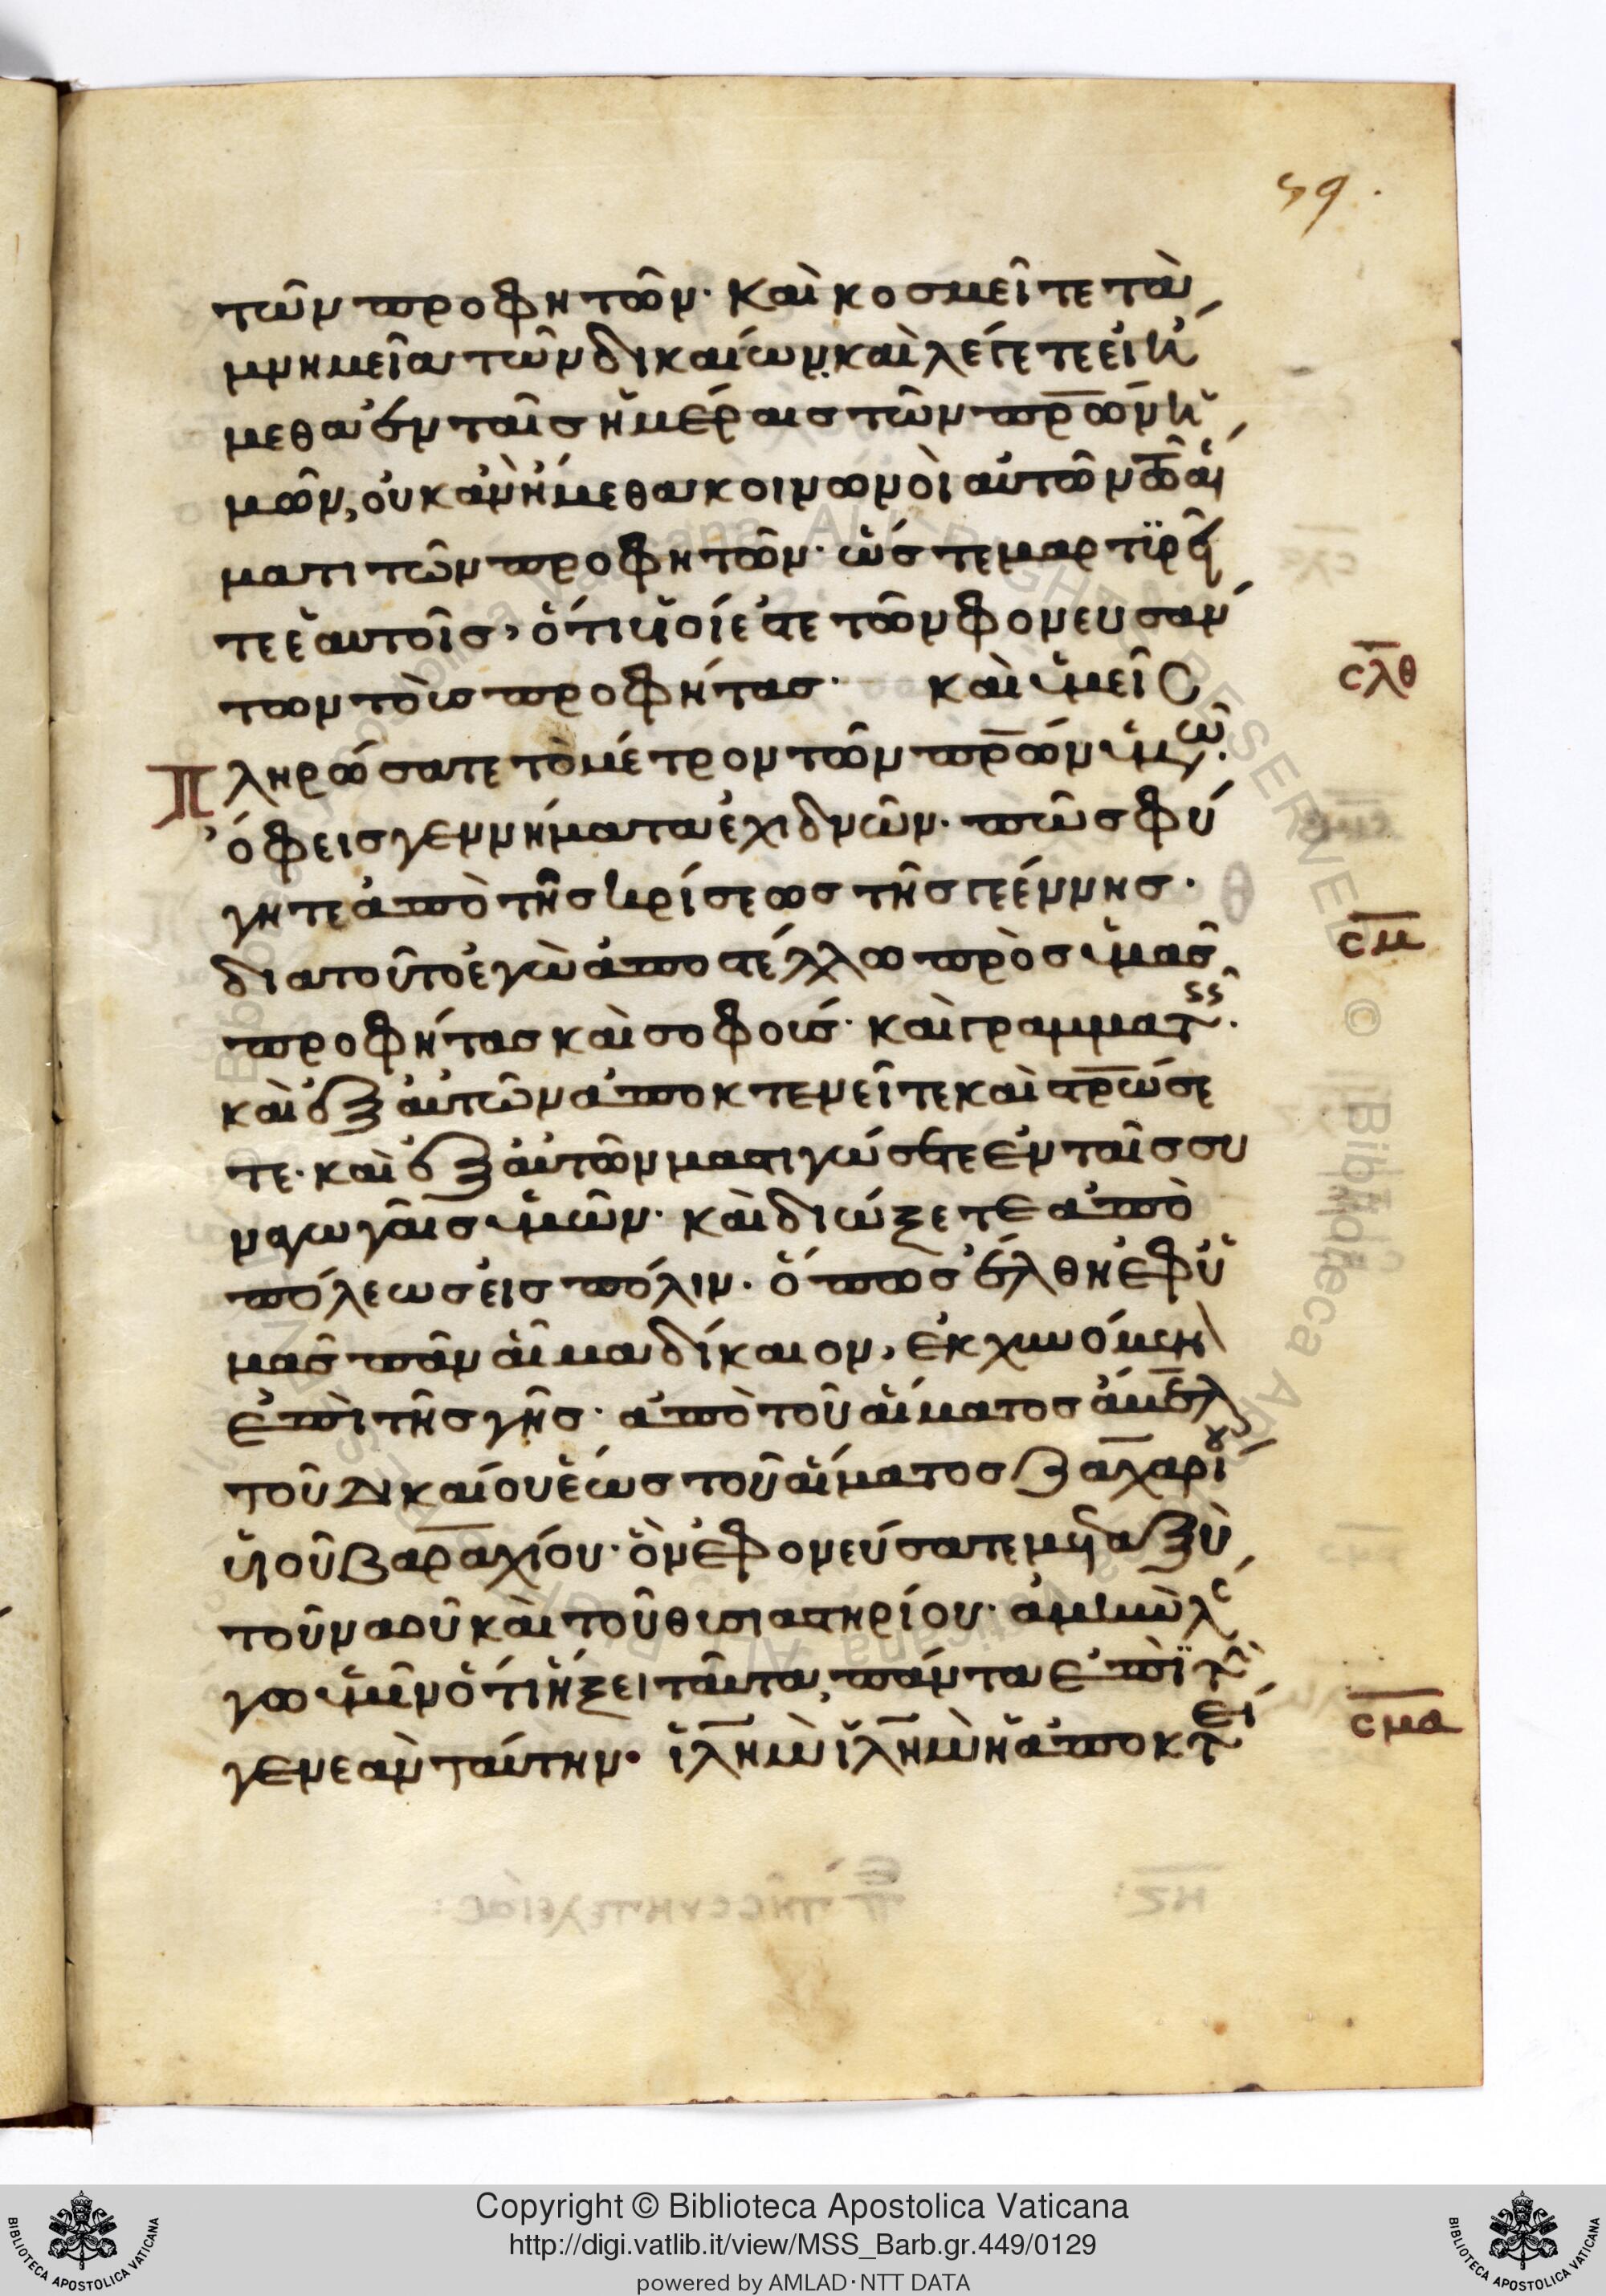 59.
τῶν προφητῶν· καὶ κοσμεῖτε τὰ
μνημεῖα τῶν δικαίων. καὶ λέγετε εἰ ἠ
μεθα ἐν ταῖς ἡμέραις τῶν πρων ἡ
μῶν, οὐκ ἀν ἠμεθα κοινωνοὶ αὐτῶν τῶ αἵ
ματι τῶν προφητῶν· ὥστε μαρτυρεῖ
τε ἑαυτοῖς, ὅτι υἱοί ἐστε τῶν φονευσάν
των τοὺς προφήτας· καὶ ὑμεῖς
σλθ
Πληρώσατε τὸ μέτρον τῶν πρων ὑμῶ.
ὄφεις γεννήματα ἐχιδνῶν· πῶς φύ
γητε ἀπὸ τῆς κρίσεως τῆς γεέννης·
σμ
διατοῦτο ἐγὼ ἀποστέλλω πρὸς ὑμᾶς
προφήτας καὶ σοφούς· καὶ γραμματ.
καὶ ἐξ αὐτῶν ἀποκτενεῖτε καὶ στρώσε
τε· καὶ ἐξ αὐτῶν μαστιγώσετε ἐν ταῖς συ
ναγωγαῖς ὑμῶν· καὶ διώξετε ἀπὸ
πόλεως εἰς πόλιν· ὅπως ἔλθη ἐφ ὑ
μᾶς πᾶν αἷμα δίκαιον, ἐκχυνόμεν
ἐπὶ τῆς γῆς· ἀπὸ τοῦ αἵματος ἄβελ
τοῦ δικαίου ἕως τοῦ αἵματος ζαχαρίου
υἱοῦ βαραχίου· ὃν ἐφονεύσατε μεταξὺ
τοῦ ναοῦ καὶ τοῦ θυσιαστηρίου· ἀμὴν λέ
γω ὑμῖν ὅτι ἥξει ταῦτα πάντα ἐπὶ τ
γενεὰν ταύτην· ἰλημ ἰλημ ἡ ἀποκτεί
σμα
Copyright © Biblioteca Apostolica Vaticana
http://digi.vatlib.it/view/MSS_Barb.gr.449/0129
powered by AMLAD·NTT DATA
BIBLIOTECA APOSTOLICA VATICANA
BIBLIOTECA APOSTOLICA VATICANA